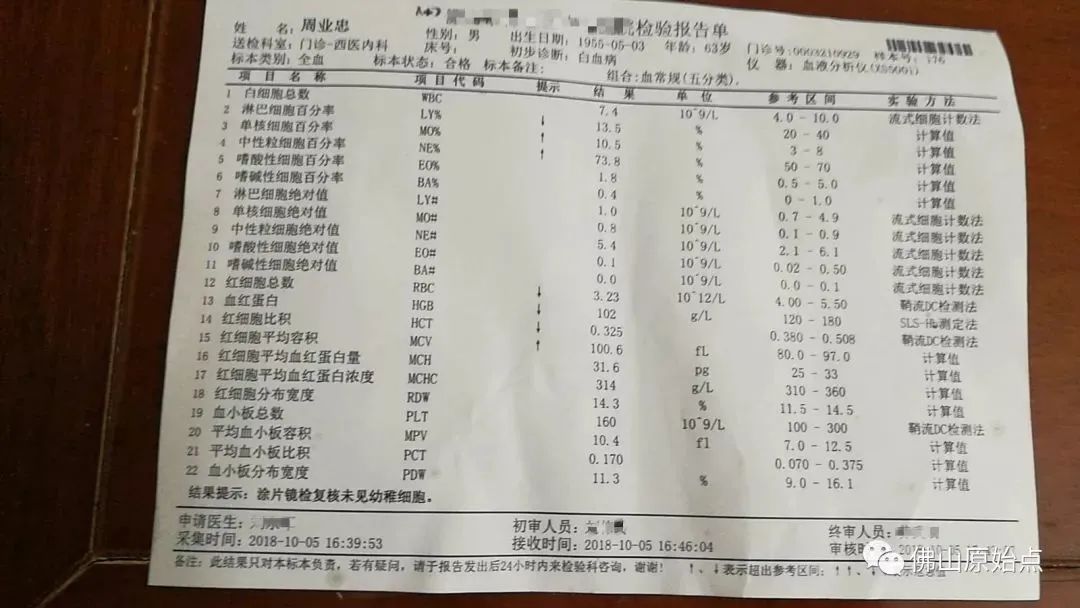 院检验报告单
姓 名: 周业忠 性别: 男 出生日期: 1955-05-03 年龄: 63岁 门诊号:0003210929 样本号: 176
送检科室: 门诊-西医内科 床号: 初步诊断: 白血病 仪 器: 血液分析仪(XS500i)
标本类别: 全血 标本状态: 合格 标本备注: 组合: 血常规(五分类).
项 目 名 称 项 目 代 码 提示 结 果 单 位 参 考 区 间 实 验 方 法
1 白细胞总数 WBC 7.4 10^9/L 4.0 - 10.0 流式细胞计数法
2 淋巴细胞百分率 LY% ↓ 13.5 % 20 - 40 计算值
3 单核细胞百分率 MO% ↑ 10.5 % 3 - 8 计算值
4 中性粒细胞百分率 NE% ↑ 73.8 % 50 - 70 计算值
5 嗜酸性细胞百分率 EO% 1.8 % 0.5 - 5.0 计算值
6 嗜碱性细胞百分率 BA% 0.4 % 0 - 1.0 计算值
7 淋巴细胞绝对值 LY# 1.0 10^9/L 0.7 - 4.9 流式细胞计数法
8 单核细胞绝对值 MO# 0.8 10^9/L 0.1 - 0.9 流式细胞计数法
9 中性粒细胞绝对值 NE# 5.4 10^9/L 2.1 - 6.1 流式细胞计数法
10 嗜酸性细胞绝对值 EO# 0.1 10^9/L 0.02 - 0.50 流式细胞计数法
11 嗜碱性细胞绝对值 BA# 0.0 10^9/L 0.0 - 0.1 流式细胞计数法
12 红细胞总数 RBC ↓ 3.23 10^12/L 4.00 - 5.50 鞘流DC检测法
13 血红蛋白 HGB ↓ 102 g/L 120 - 180 SLS-Hb测定法
14 红细胞比积 HCT ↓ 0.325 0.380 - 0.508 鞘流DC检测法
15 红细胞平均容积 MCV ↑ 100.6 fL 80.0 - 97.0 计算值
16 红细胞平均血红蛋白量 MCH 31.6 pg 25 - 33 计算值
17 红细胞平均血红蛋白浓度 MCHC 314 g/L 310 - 360 计算值
18 红细胞分布宽度 RDW 14.3 % 11.5 - 14.5 计算值
19 血小板总数 PLT 160 10^9/L 100 - 300 鞘流DC检测法
20 平均血小板容积 MPV 10.4 fl 7.0 - 12.5 计算值
21 平均血小板比积 PCT 0.170 0.070 - 0.375 计算值
22 血小板分布宽度 PDW 11.3 % 9.0 - 16.1 计算值
结果提示: 涂片镜检复核未见幼稚细胞。
申请医生: 初审人员: 终审人员:
采集时间: 2018-10-05 16:39:53 接收时间: 2018-10-05 16:46:04 审核时间:
备注: 此结果只对本标本负责, 若有疑问, 请于报告发出后24小时内来检验科咨询, 谢谢! ↑、↓表示超出参考区间; ↑↑、
佛山原始点